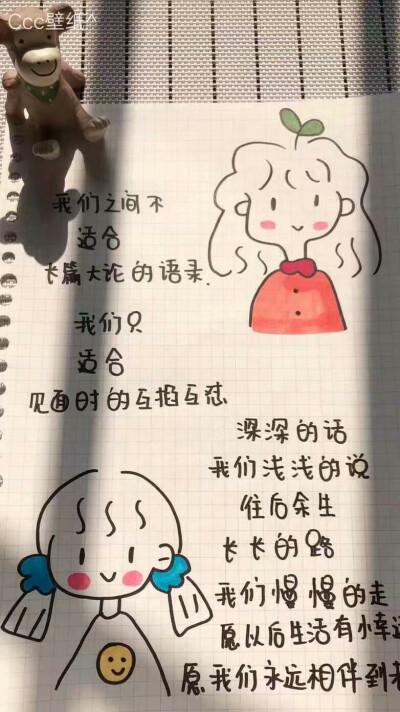 Ccc壁纸^
我们之间不
适合
长篇大论的语录.
我们只
适合
见面时的互掐互怼
深深的话
我们浅浅的说
往后余生
长长的路
我们慢慢的走
愿以后生活有小幸
愿我们永远相伴到